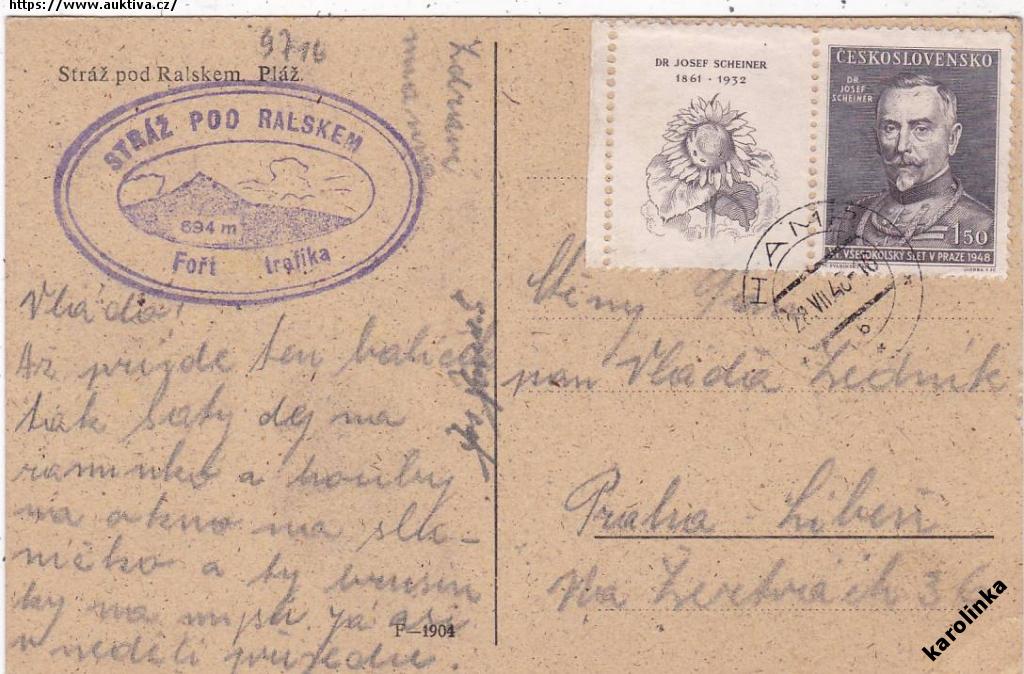 https://www.auktiva.cz/
9716
Stráž pod Ralskem. Pláž.
STRÁŽ POD RALSKEM
694 m
Fořt trafika
Zdraví
Vláďo!
Až prijde ten balicek
tak šaty dej na
ramínko a houby
na okno na slu-
níčko a ty brusin
ky na mísu. Já asi
v neděli přijedu.
F—1904
DR JOSEF SCHEINER
1861 · 1932
ČESKOSLOVENSKO
DR JOSEF SCHEINER
1.50
XI. VŠESOKOLSKÝ SLET V PRAZE 1948
HAM
22.VII.48
b
pan Vláďa Ledník
Praha - Libeň
Na Žertvách 36
karolinka